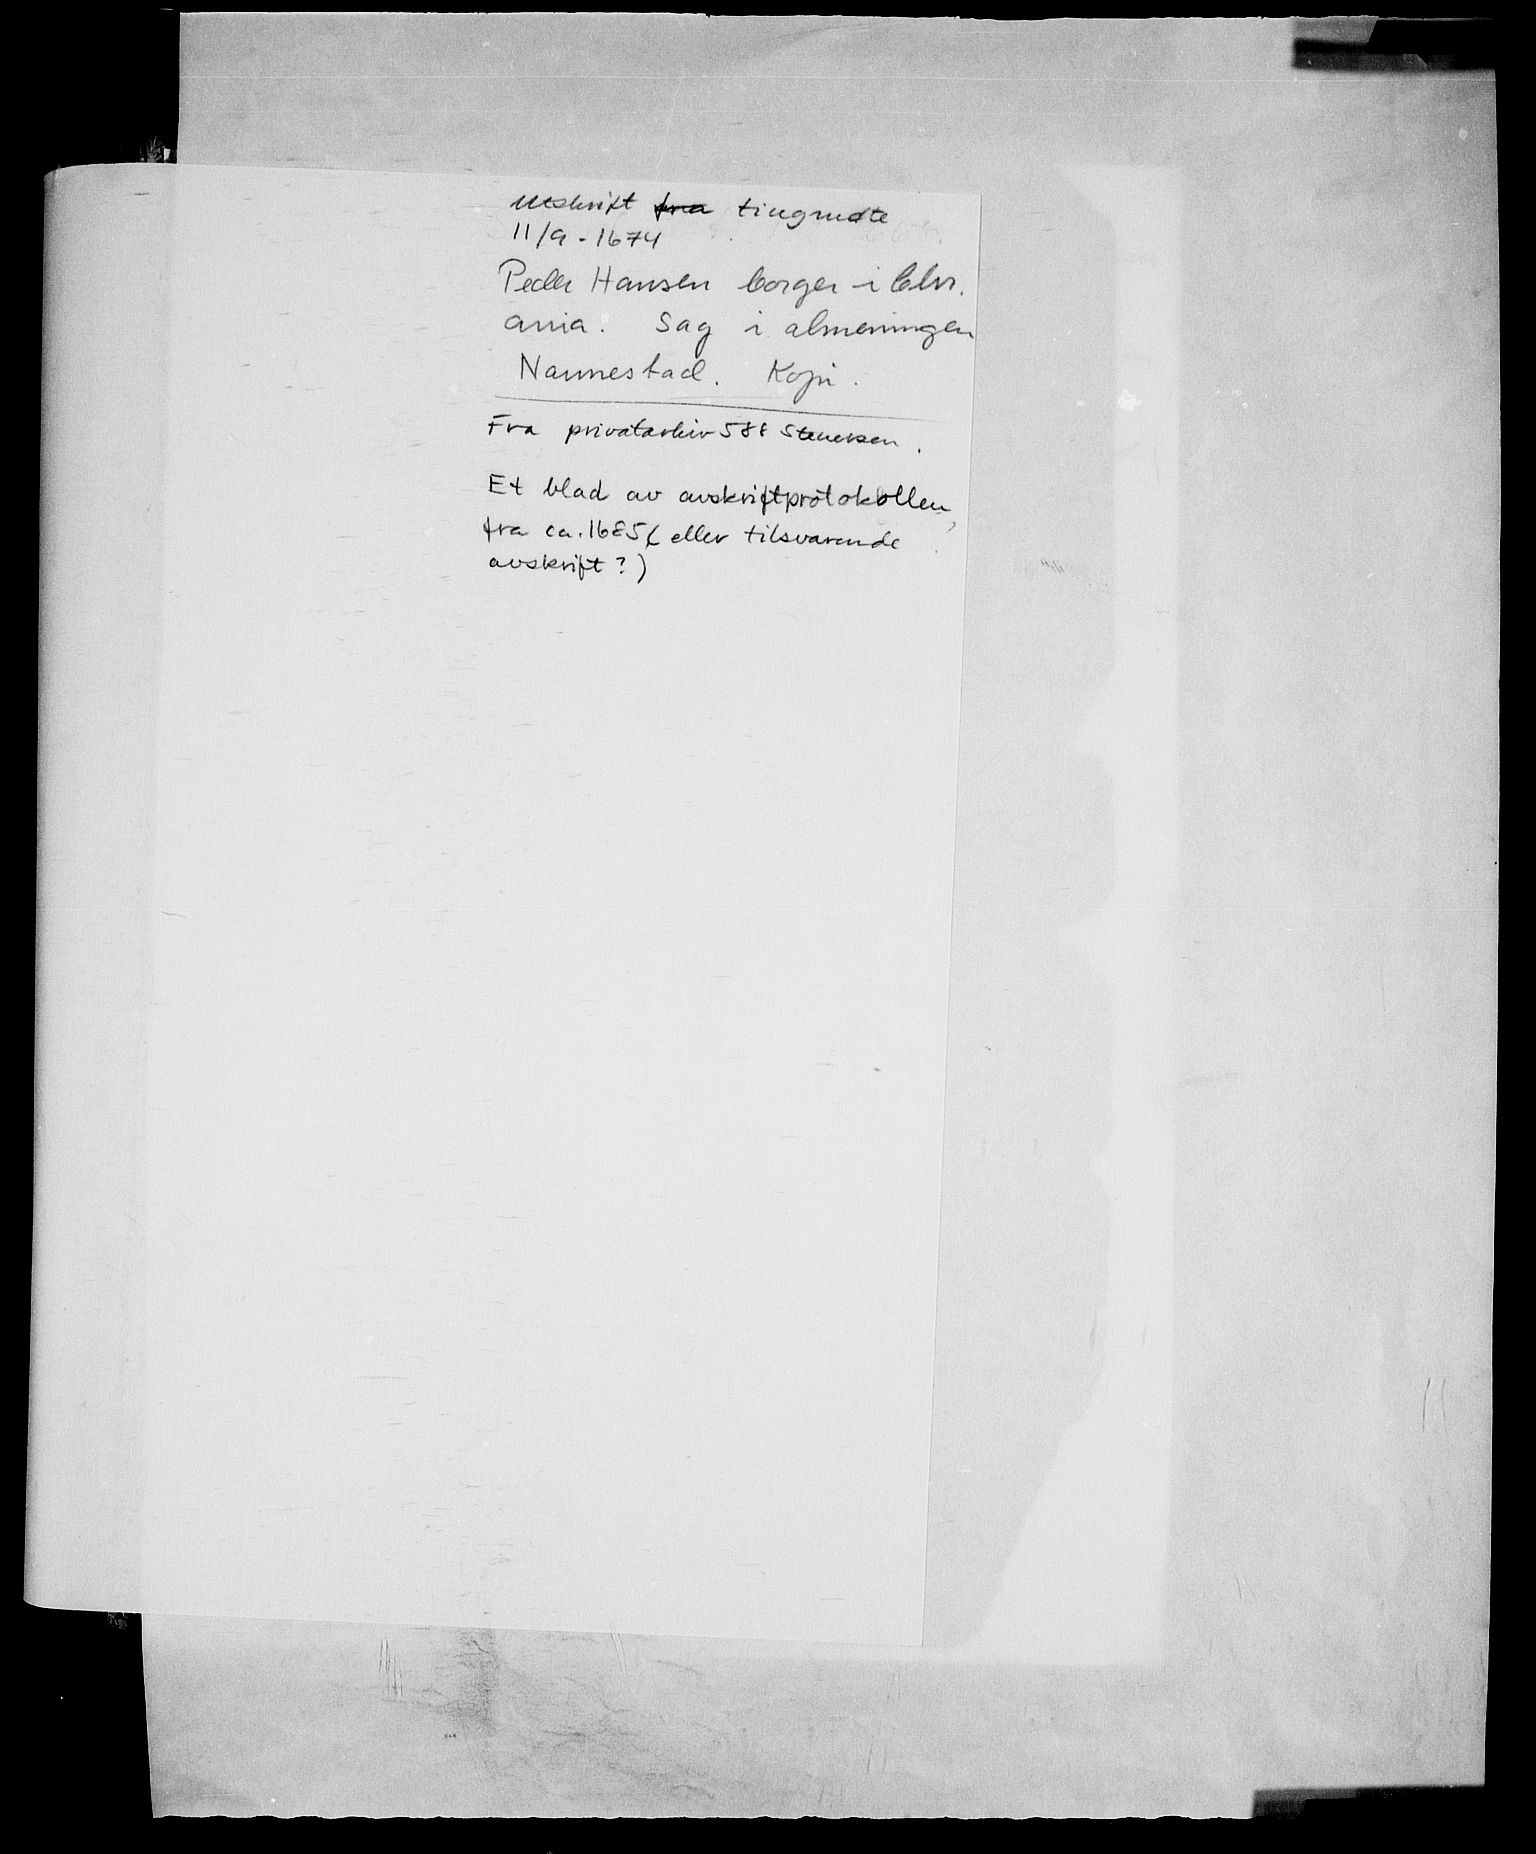 Utskrift ~~fra~~ tingmøte
11/9-1674
Peder Hansen borger i Chr.
ania. Sag i almenningen
Nannestad. Kopi.
Fra privatarkiv 588 Stenersen.
Et blad av avskriftprotokollen
fra ca. 1685 (eller tilsvarende
avskrift?)